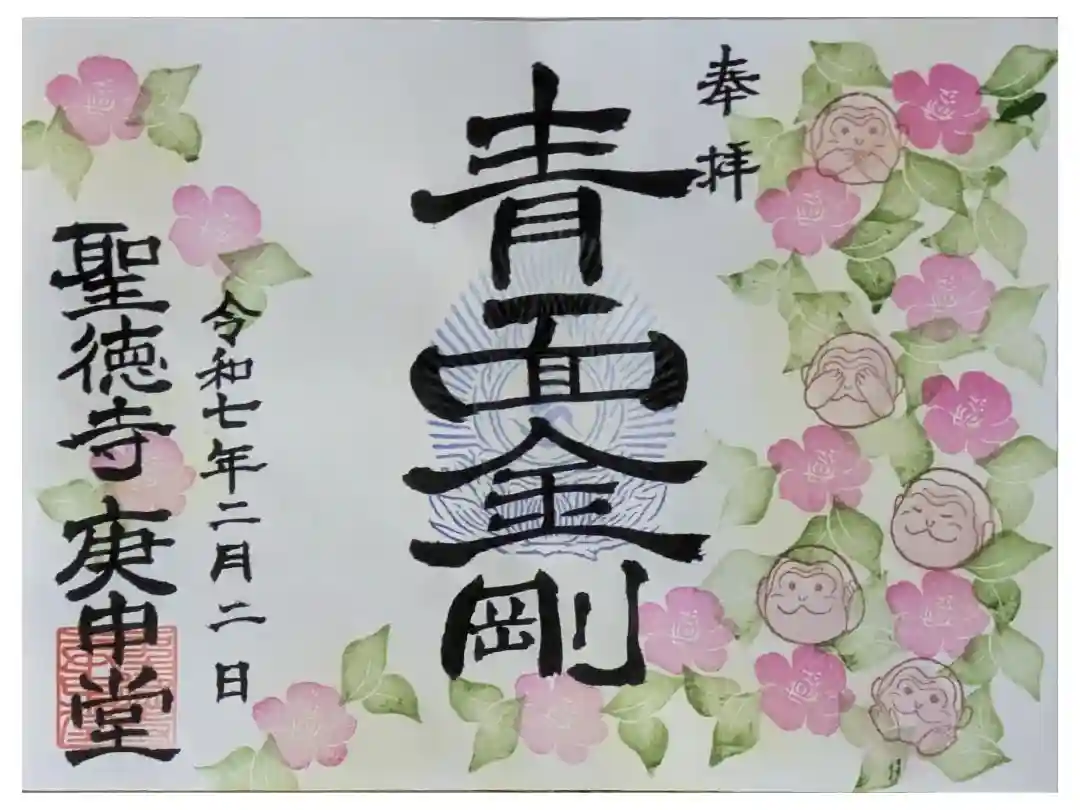 奉拝
青面金剛
令和七年二月二日
聖徳寺庚申堂